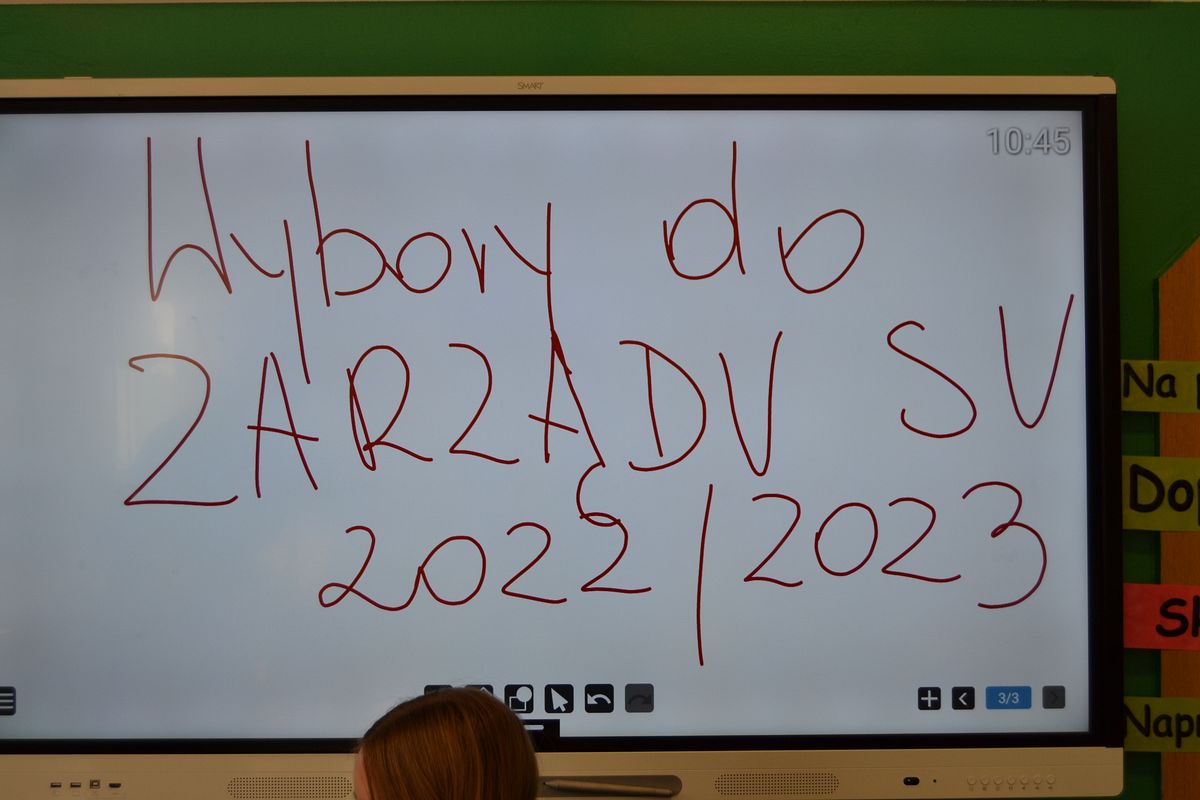 SMART
10:45
Wybory do
ZARZĄDU SU
2022/2023
3/3
Na